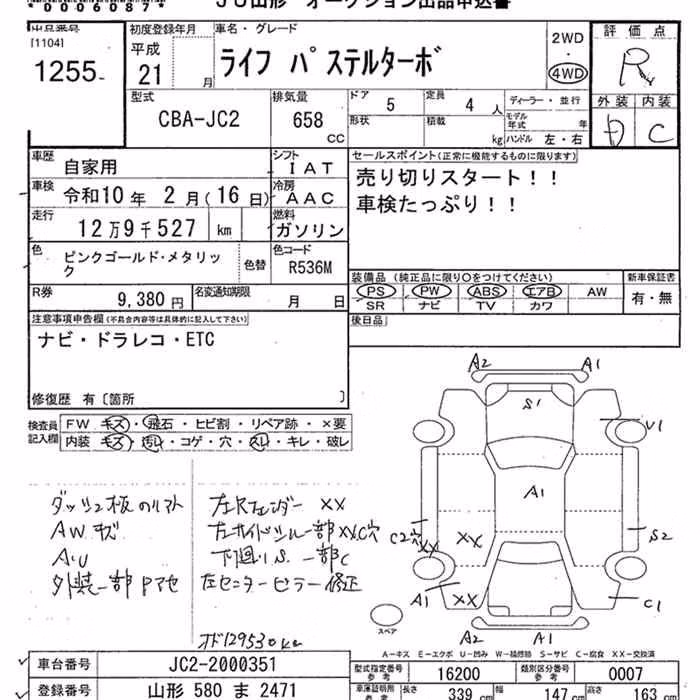 *006087*
JU山形 オークション出品申込書
出品番号
[1104]
1255
初度登録年月
平成
21
月
車名・グレード
ライフ パステルターボ
2WD
・
4WD
評価点
R
外装
内装
D
C
型式
CBA-JC2
排気量
658
CC
ドア
5
定員
4
人
形状
積載
kg
ディーラー・並行
モデル年式
年
ハンドル 左・右
車歴
自家用
シフト
IAT
車検
令和10年 2月(16日)
冷房
AAC
走行
12万9千527
km
燃料
ガソリン
色
ピンクゴールド・メタリック
色替
色コード
R536M
R券
9,380円
名変通知期限
月 日
セールスポイント(正常に機能するものに限ります)
売り切りスタート!!
車検たっぷり!!
装備品(純正品に限り○をつけてください)
新車保証書
PS
PW
ABS
エアB
AW
SR
ナビ
TV
カワ
有・無
後日品
注意事項申告欄(不具合内容等は具体的に記入して下さい)
ナビ・ドラレコ・ETC
修復歴 有〔箇所 〕
検査員記入欄
FW キズ・飛石・ヒビ割・リペア跡・×要
内装 キズ・汚れ・コゲ・穴・スレ・キレ・破レ
ダッシュ板のリフト
AWキズ
A.U
外装一部Pマセ
左Rフェンダー XX
左サイドシル一部XX,C穴
下廻りS.一部C
左センターピラー修正
A2
A1
S1
V1
A1
C2穴
XX
XX
S2
A1
XX
C1
A2
A1
スペア
A-キス E-エクボ U-凹み W-補修跡 S-サビ C-腐食 XX-交換済
車台番号
JC2-2000351
登録番号
山形 580 ま 2471
型式指定番号
参考
16200
類別区分番号
参考
0007
車庫証明用
参考
長さ
339
cm
幅
147
cm
高さ
163
cm